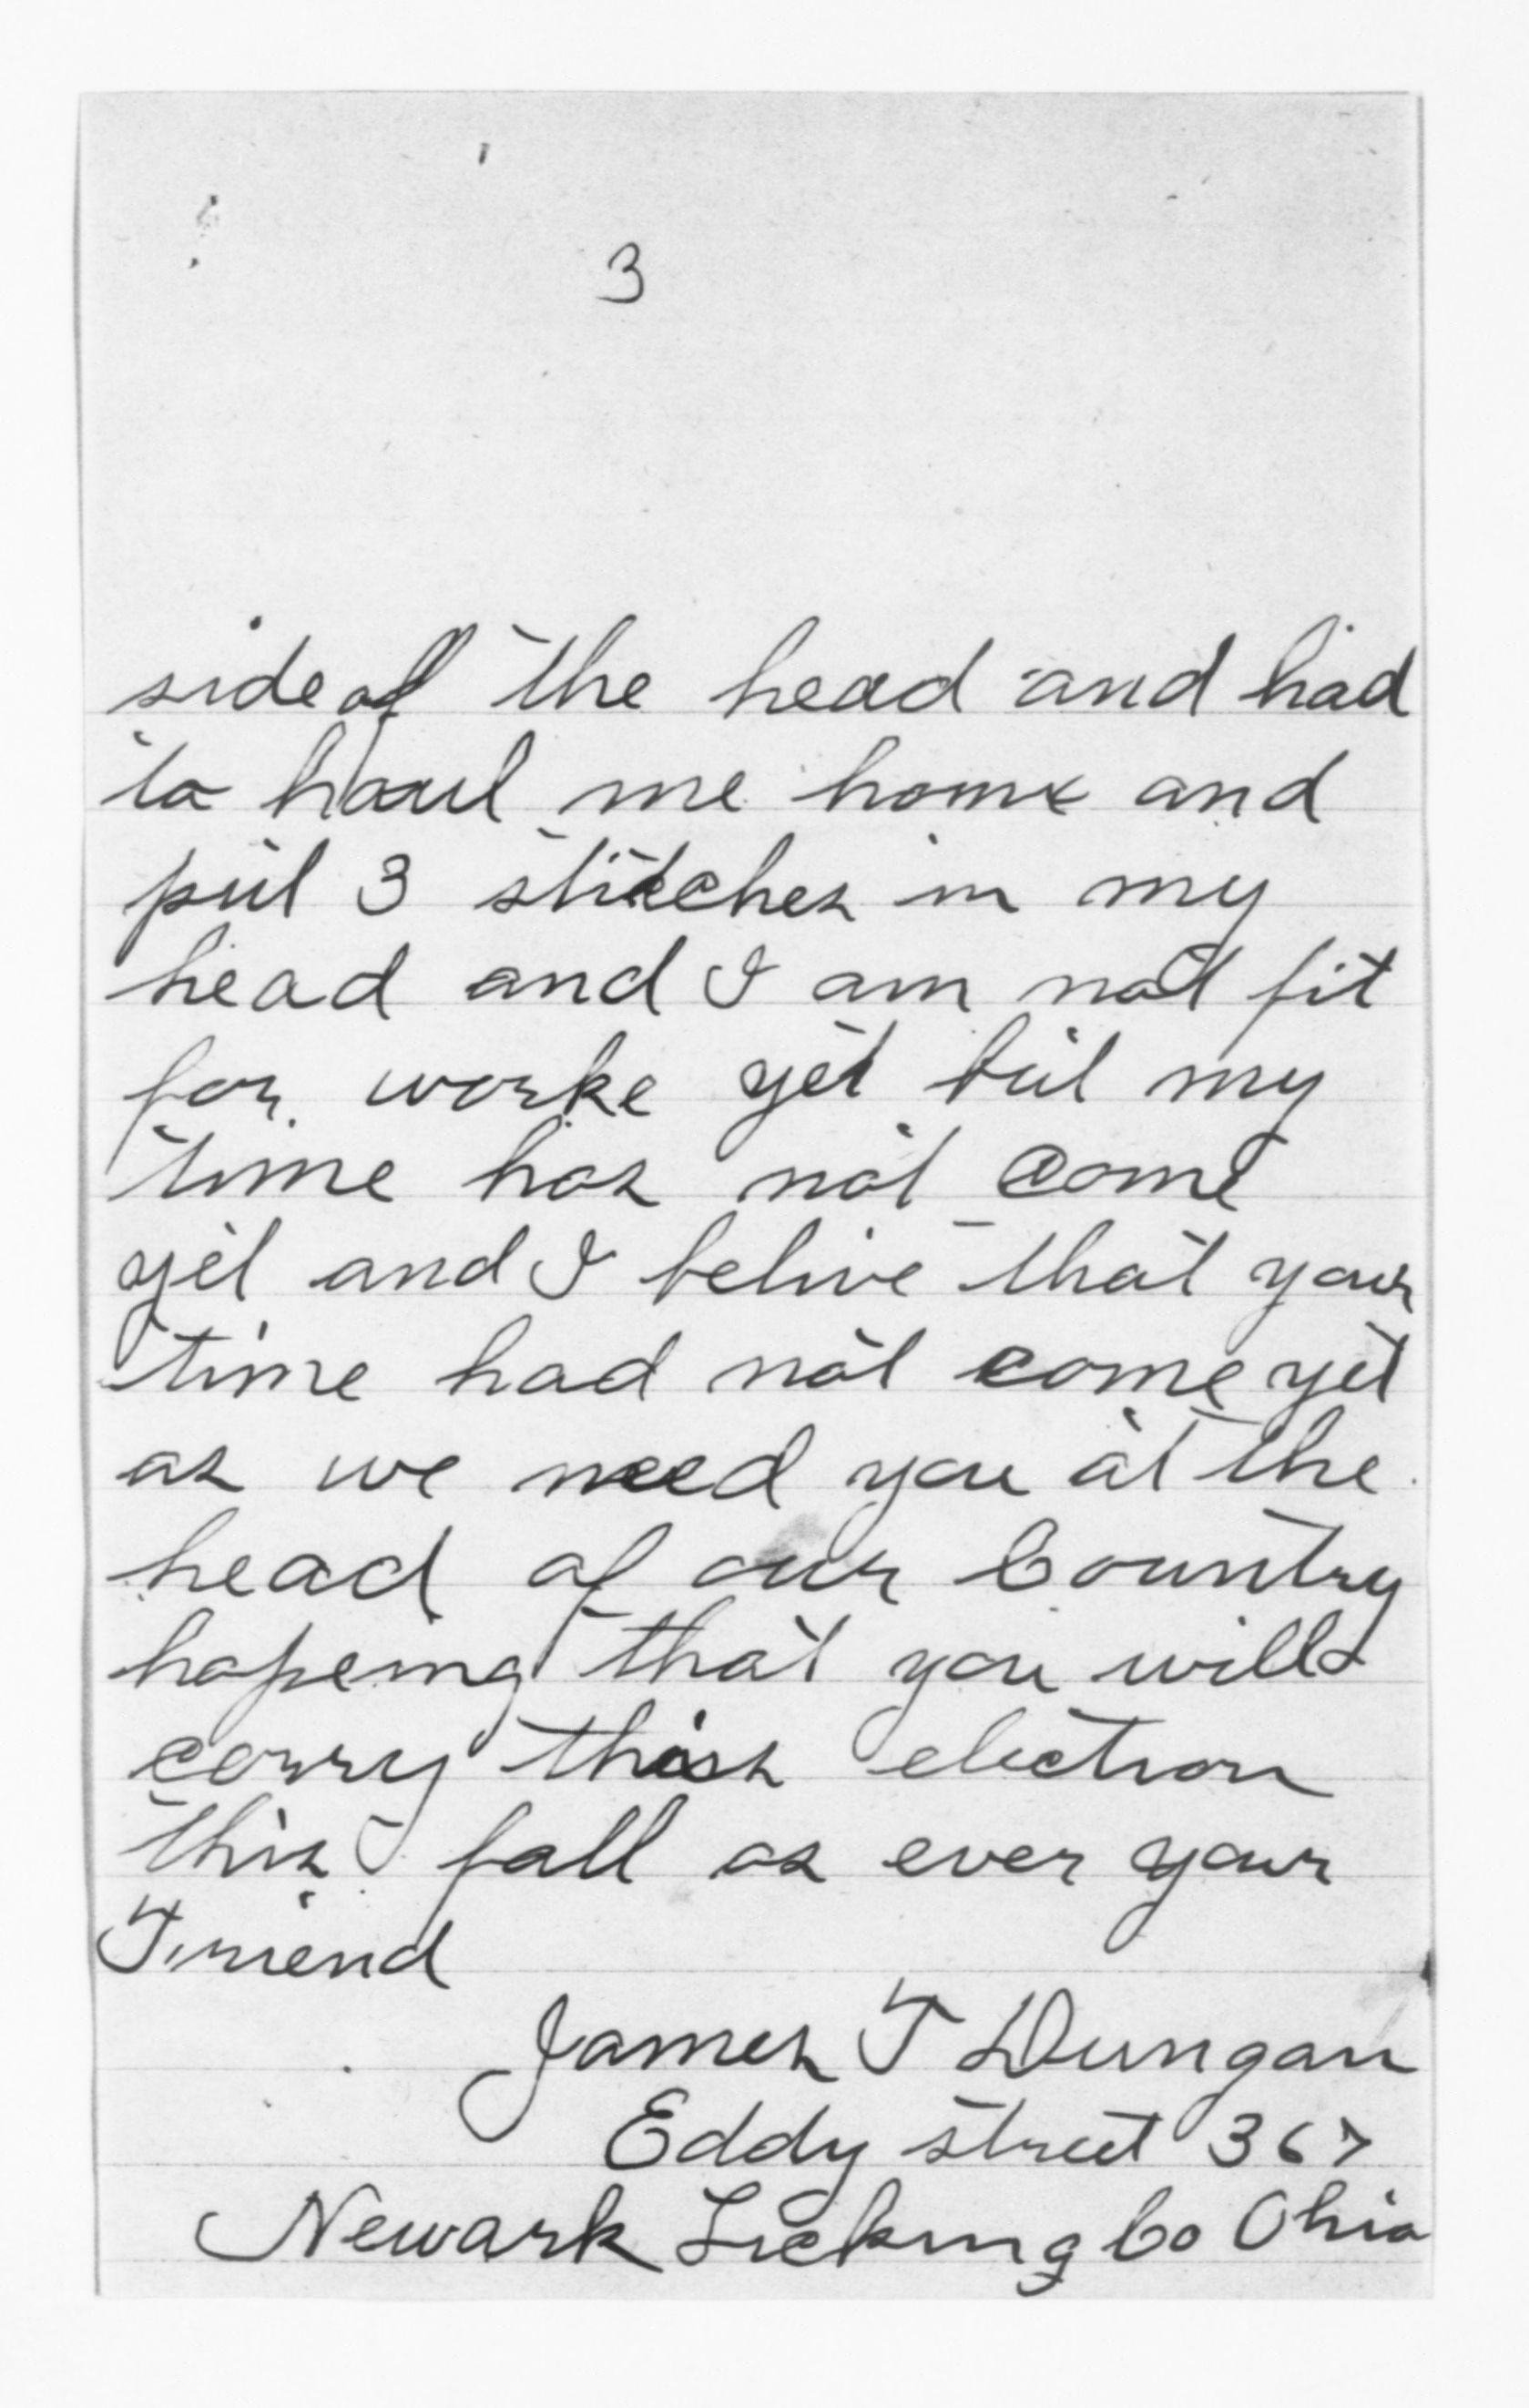 3
side of the head and had
to haul me home and
put 3 stitches in my
head and I am not fit
for worke yet but my
time has not come
yet and I belive that your
time had not come yet
as we need you at the
head of our Country
hopeing that you will
corry this election
this fall as ever your
Friend
James T Dungan
Eddy street 367
Newark Licking Co Ohio